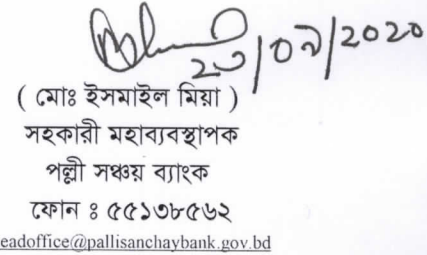 ২৩/০৯/2020
( মোঃ ইসমাইল মিয়া )
সহকারী মহাব্যবস্থাপক
পল্লী সঞ্চয় ব্যাংক
ফোন ঃ ৫৫১৩৮৫৬২
eadoffice@pallisanchaybank.gov.bd